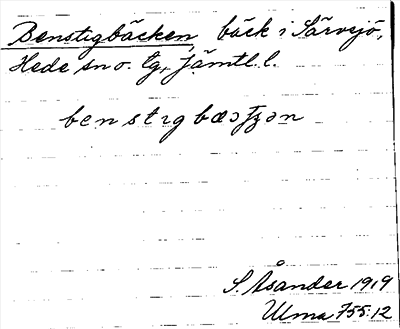 Benstigbäcken, bäck i Särvsjö,
Hede sn o. tg, Jämtl. l.
benstigbæɔʄʒən
S. Åsander 1919
Ulma 755:12